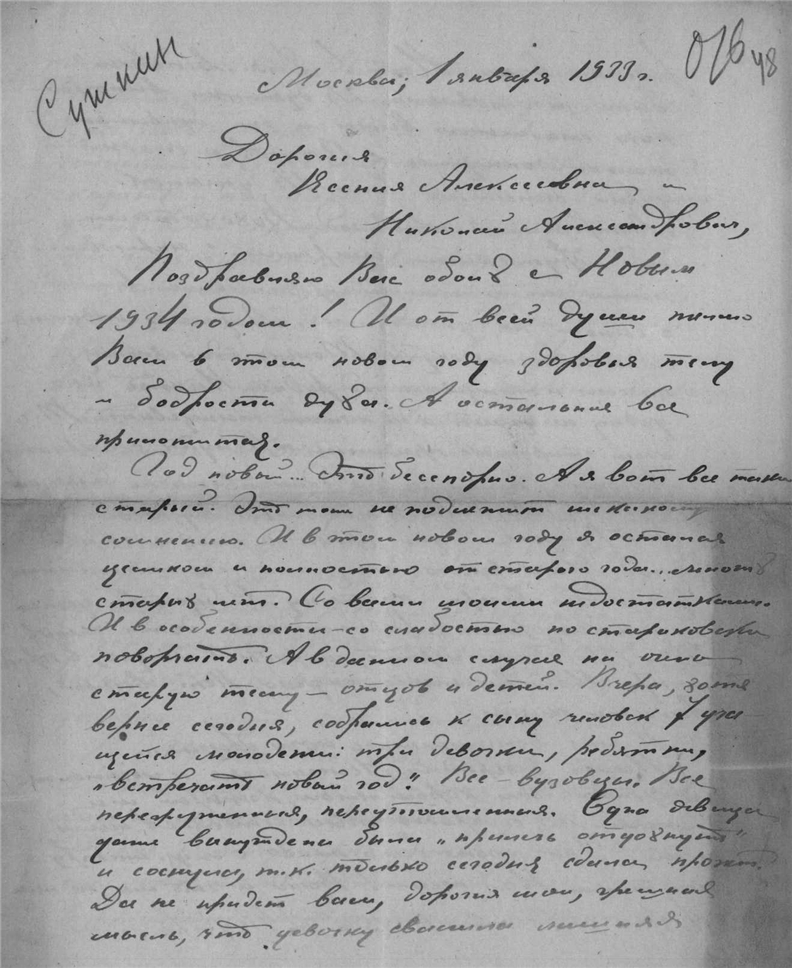 Сушкин
Москва; 1 января 1933 г.
Дорогия
Ксения Алексеевна и
Николай Александрович,
Поздравляю Вас обоих с Новым
1934 годом! И от всей души желаю
Вам в этом новом году здоровья телу
и бодрости духа. А остальное все
приложится.
Год новый... Это бесспорно. А я вот все таки
старый. Это тоже не подлежит никакому
сомнению. И в этом новом году я остался
целиком и полностью от старого года... многих
старых лет. Со всеми моими недостатками.
И в особенности – со слабостью по стариковски
поворчать. А в данном случае на очень
старую тему – отцов и детей. Вчера, хотя
вернее сегодня, собрались к сыну человек 7 уча
щейся молодежи: три девочки, ребятки,
"встречать новый год". Все – вузовцы. Все
перегруженныя, переутомленныя. Одна девица
даже вынуждена была "прилечь отдохнуть"
и соснула, т.к. только сегодня сдала проект.
Да не придет вам, дорогия мои, грешная
мысль, что девочку свалила лишняя